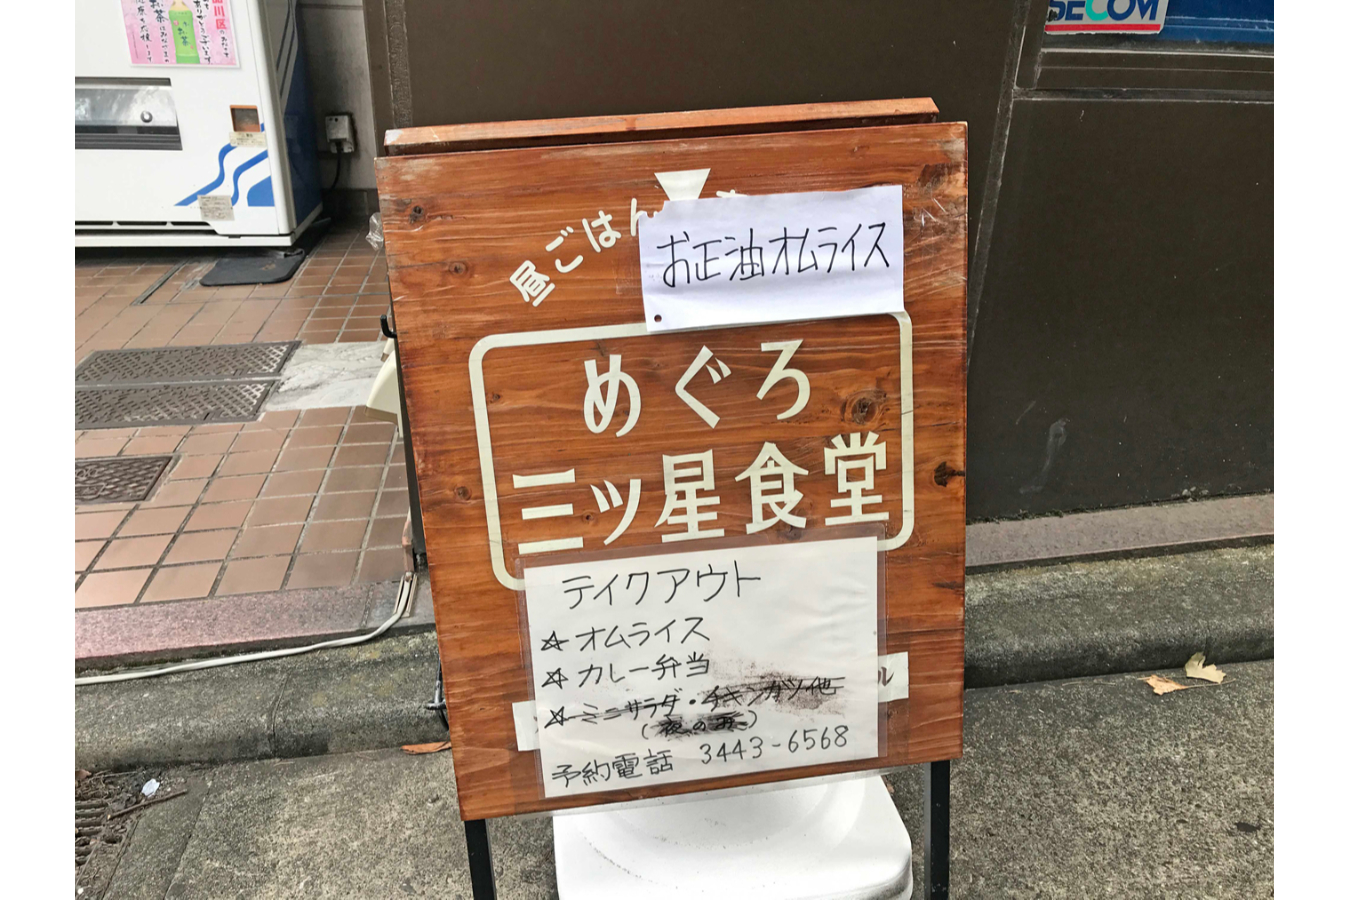 DECOM
昼ごはん
お正油オムライス
めぐろ
三ツ星食堂
テイクアウト
☆オムライス
☆カレー弁当
☆ミニサラダ・チキンカツ他
(夜のみ)
予約電話 3443-6568
ル